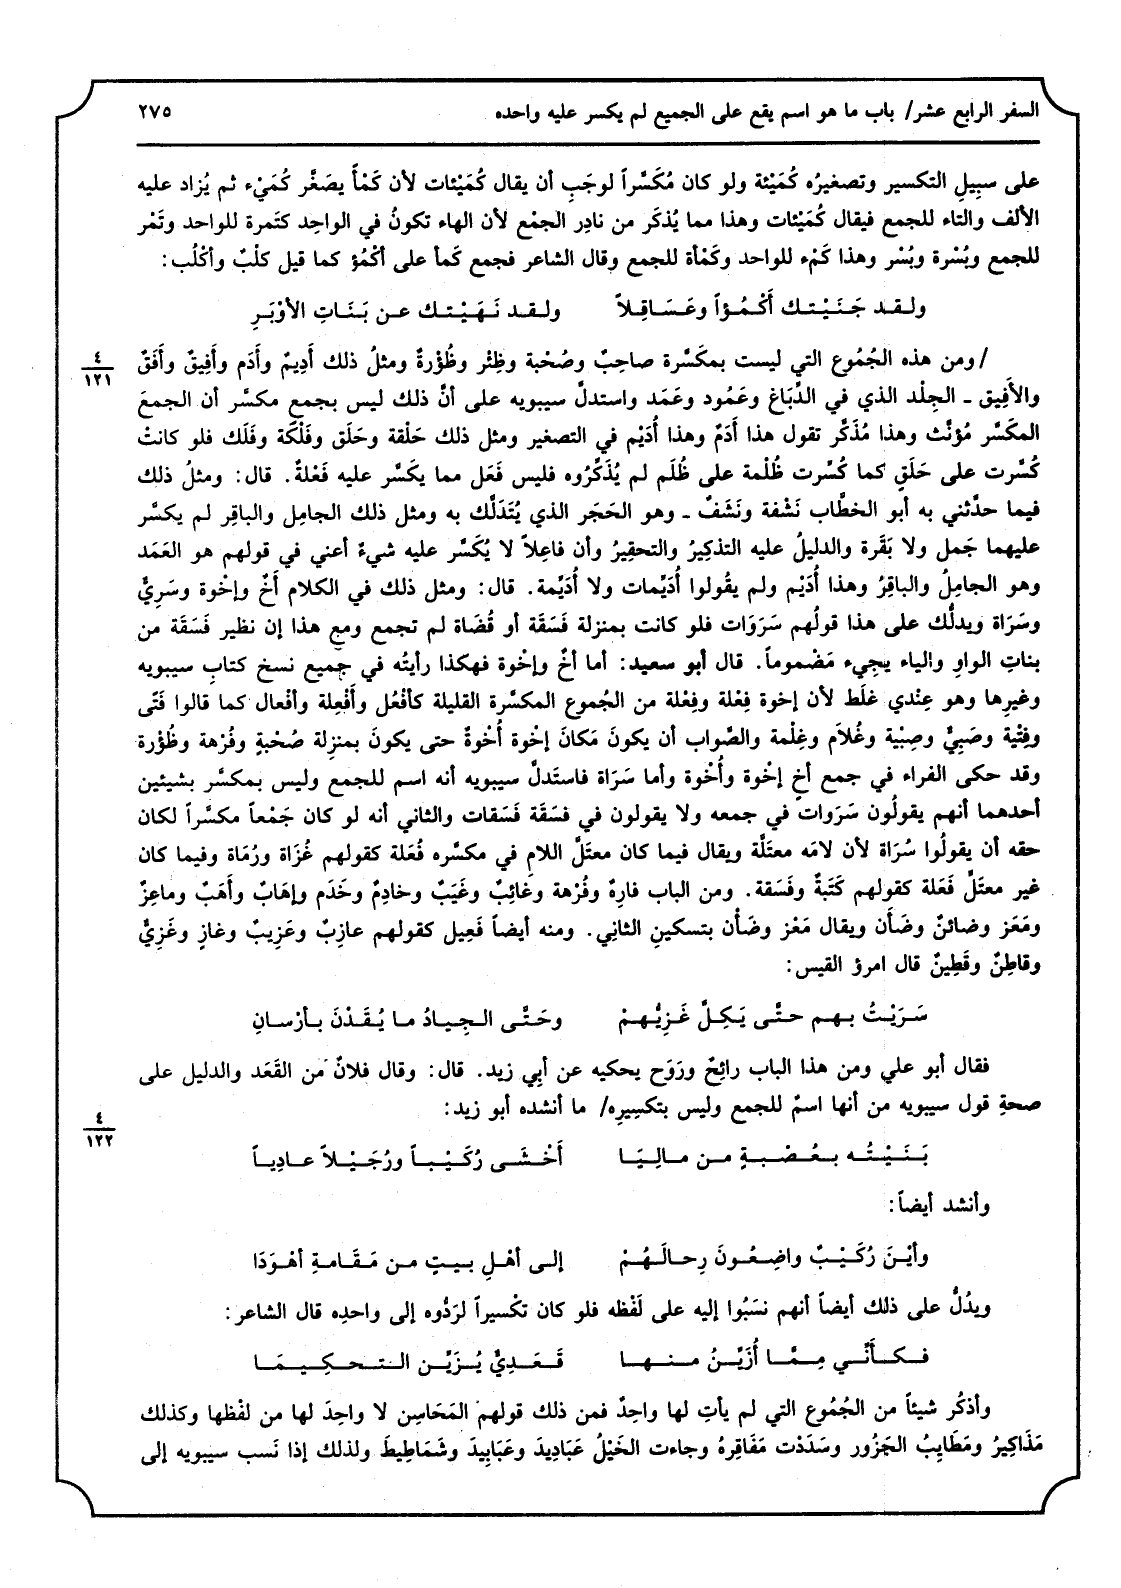 السفر الرابع عشر/ باب ما هو اسم يقع على الجميع لم يكسر عليه واحده ٢٧٥
على سبيلِ التكسير وتصغيرُه كُمَيْئة ولو كان مُكَسَّراً لوجَبِ أن يقال كُمَيْئات لأن كَمْأً يصَغَّر كُمَيْء ثم يُزاد عليه
الألف والتاء للجمع فيقال كُمَيْئات وهذا مما يُذكَر من نادِر الجمْع لأن الهاء تكونُ في الواحِد كتَمرة للواحد وتَمْر
للجمع وبُسْرة وبُسْر وهذا كَمْء للواحد وكَمْأة للجمع وقال الشاعر فجمع كَمأ على أكْمُؤ كما قيل كلْبٌ وأكْلُب:
ولـقـد جَـنَـيْـتـك أَكْـمُـؤاً وعَـسَـاقِـلاً ولـقـد نَـهَـيْـتـك عـن بَـنَـاتِ الأوْبَـرِ
/ ومن هذه الجُمُوع التي ليست بمكَسَّرة صاحِبٌ وصُحْبة وظِئْر وظُؤْرةٌ ومثلُ ذلك أَدِيمٌ وأَدَم وأَفِيقٌ وأَفَقٌ
٤
١٢١
والأَفِيق ـ الجِلْد الذي في الدِّبَاغ وعَمُود وعَمَد واستدلَّ سيبويه على أنَّ ذلك ليس بجمع مكسَّر أن الجمعَ
المكَسَّر مُؤنَّث وهذا مُذَكَّر تقول هذا أَدَمٌ وهذا أُدَيْم في التصغير ومثل ذلك حَلْقة وحَلَق وفَلْكَة وفَلَك فلو كانتْ
كُسِّرت على حَلَقٍ كما كُسِّرت ظُلْمة على ظُلَم لم يُذَكِّرُوه فليس فَعَل مما يكَسَّر عليه فَعْلةٌ. قال: ومثلُ ذلك
فيما حدَّثني به أبو الخطَّاب نَشْفة ونَشَفٌ ـ وهو الحَجَر الذي يُتَدَلَّك به ومثل ذلك الجامِل والباقِر لم يكسَّر
عليهما جَمل ولا بَقَرة والدليلُ عليه التذكِيرُ والتحقِيرُ وأن فاعِلاً لا يُكَسَّر عليه شيءٌ أعني في قولهم هو العَمَد
وهو الجامِلُ والباقِرُ وهذا أُدَيْم ولم يقُولوا أُدَيِّمات ولا أُدَيِّمة. قال: ومثل ذلك في الكلام أَخٌ وإخْوة وسَرِيٌّ
وسَرَاة ويدلُّك على هذا قولُهم سَرَوَات فلو كانت بمنزلة فَسَقَة أو قُضَاة لم تجمع ومع هذا إن نظير فَسَقَة من
بناتِ الواوِ والياء يجِيء مَضْموماً. قال أبو سعيد: أما أخٌ وإخْوة فهكذا رأيتُه في جميع نسخ كتابِ سيبويه
وغيرِها وهو عِنْدي غلَط لأن إخوة فِعْلة وفِعْلة من الجُموع المكسَّرة القليلة كأفْعُل وأَفْعِلة وأفْعال كما قالوا فَتَى
وفِتْية وصَبِيٌّ وصِبْية وغُلاَم وغِلْمة والصَّواب أن يكونَ مَكانَ إخْوة أُخْوةٌ حتى يكونَ بمنزلة صُحْبةٍ وفُرْهة وظُؤْرة
وقد حكى الفراء في جمع أخٍ إخْوة وأُخْوة وأما سَرَاة فاستَدلَّ سيبويه أنه اسم للجمع وليس بمكسَّر بشيئين
أحدهما أنهم يقولُون سَرَوات في جمعه ولا يقولون في فسَقَة فَسَقات والثاني أنه لو كان جَمْعاً مكسَّراً لكان
حقه أن يقولُوا سُرَاة لأن لامَه معتلَّة ويقال فيما كان معتَلَّ اللام في مكسَّره فُعَلة كقولهم غُزَاة ورُمَاة وفيما كان
غير معتلَّ فَعَلة كقولهم كَتَبةٌ وفَسَقة. ومن الباب فارِهٌ وفُرْهة وغائِبٌ وغَيَبٌ وخادِمٌ وخَدَم وإهَابٌ وأَهَبٌ وماعِزٌ
ومَعَز وضائنٌ وضَأَن ويقال مَعْز وضَأْن بتسكينِ الثانِي. ومنه أيضاً فَعِيل كقولهم عازِبٌ وعَزِيبٌ وغازٍ وغَزِيٌّ
وقاطِنٌ وقَطِينٌ قال امرؤ القيس:
سَـرَيْـتُ بـهـم حـتَّـى يَـكِـلَّ غَـزِيُّـهـمْ وحَـتَّـى الـجِـيـادُ مـا يُـقَـدْنَ بـأرْسـانِ
فقال أبو علي ومن هذا الباب رائِحٌ ورَوَح يحكيه عن أبِي زيد. قال: وقال فلانٌ من القَعَد والدليل على
صحةِ قول سيبويه من أنها اسمٌ للجمع وليس بتكسِيرِه/ ما أنشده أبو زيد:
٤
١٢٢
بَـنَـيْـتُـه بـعُـصْـبـةٍ مـن مـالِـيَـا أَخْـشَـى رُكَـيْـبـاً ورُجَـيْـلاً عـادِيـاً
وأنشد أيضاً:
وأيْـنَ رُكَـيْـبٌ واضِـعُـونَ رِحـالَـهُـمْ إلـى أهْـلِ بـيـتٍ مـن مَـقَـامـةِ أهْـوَدَا
ويدُلُّ على ذلك أيضاً أنهم نسَبُوا إليه على لَفْظه فلو كان تكْسيراً لرَدُّوه إلى واحدِه قال الشاعر:
فـكـأَنَّـي مِـمَّـا أُزَيِّـنُ مـنـهـا قَـعَـدِيٌّ يُـزَيِّـن الـتـحـكِـيـمَـا
وأذكُر شيئاً من الجُمُوع التي لم يأتِ لها واحِدٌ فمن ذلك قولهم المَحَاسِن لا واحِدَ لها من لفْظها وكذلك
مَذَاكِيرُ ومَطَايِبُ الجَزُور وسَدَدْت مَفَاقِرهُ وجاءت الخَيْلُ عَبَادِيدَ وعَبَابِيدَ وشَمَاطِيطَ ولذلك إذا نَسب سيبويه إلى